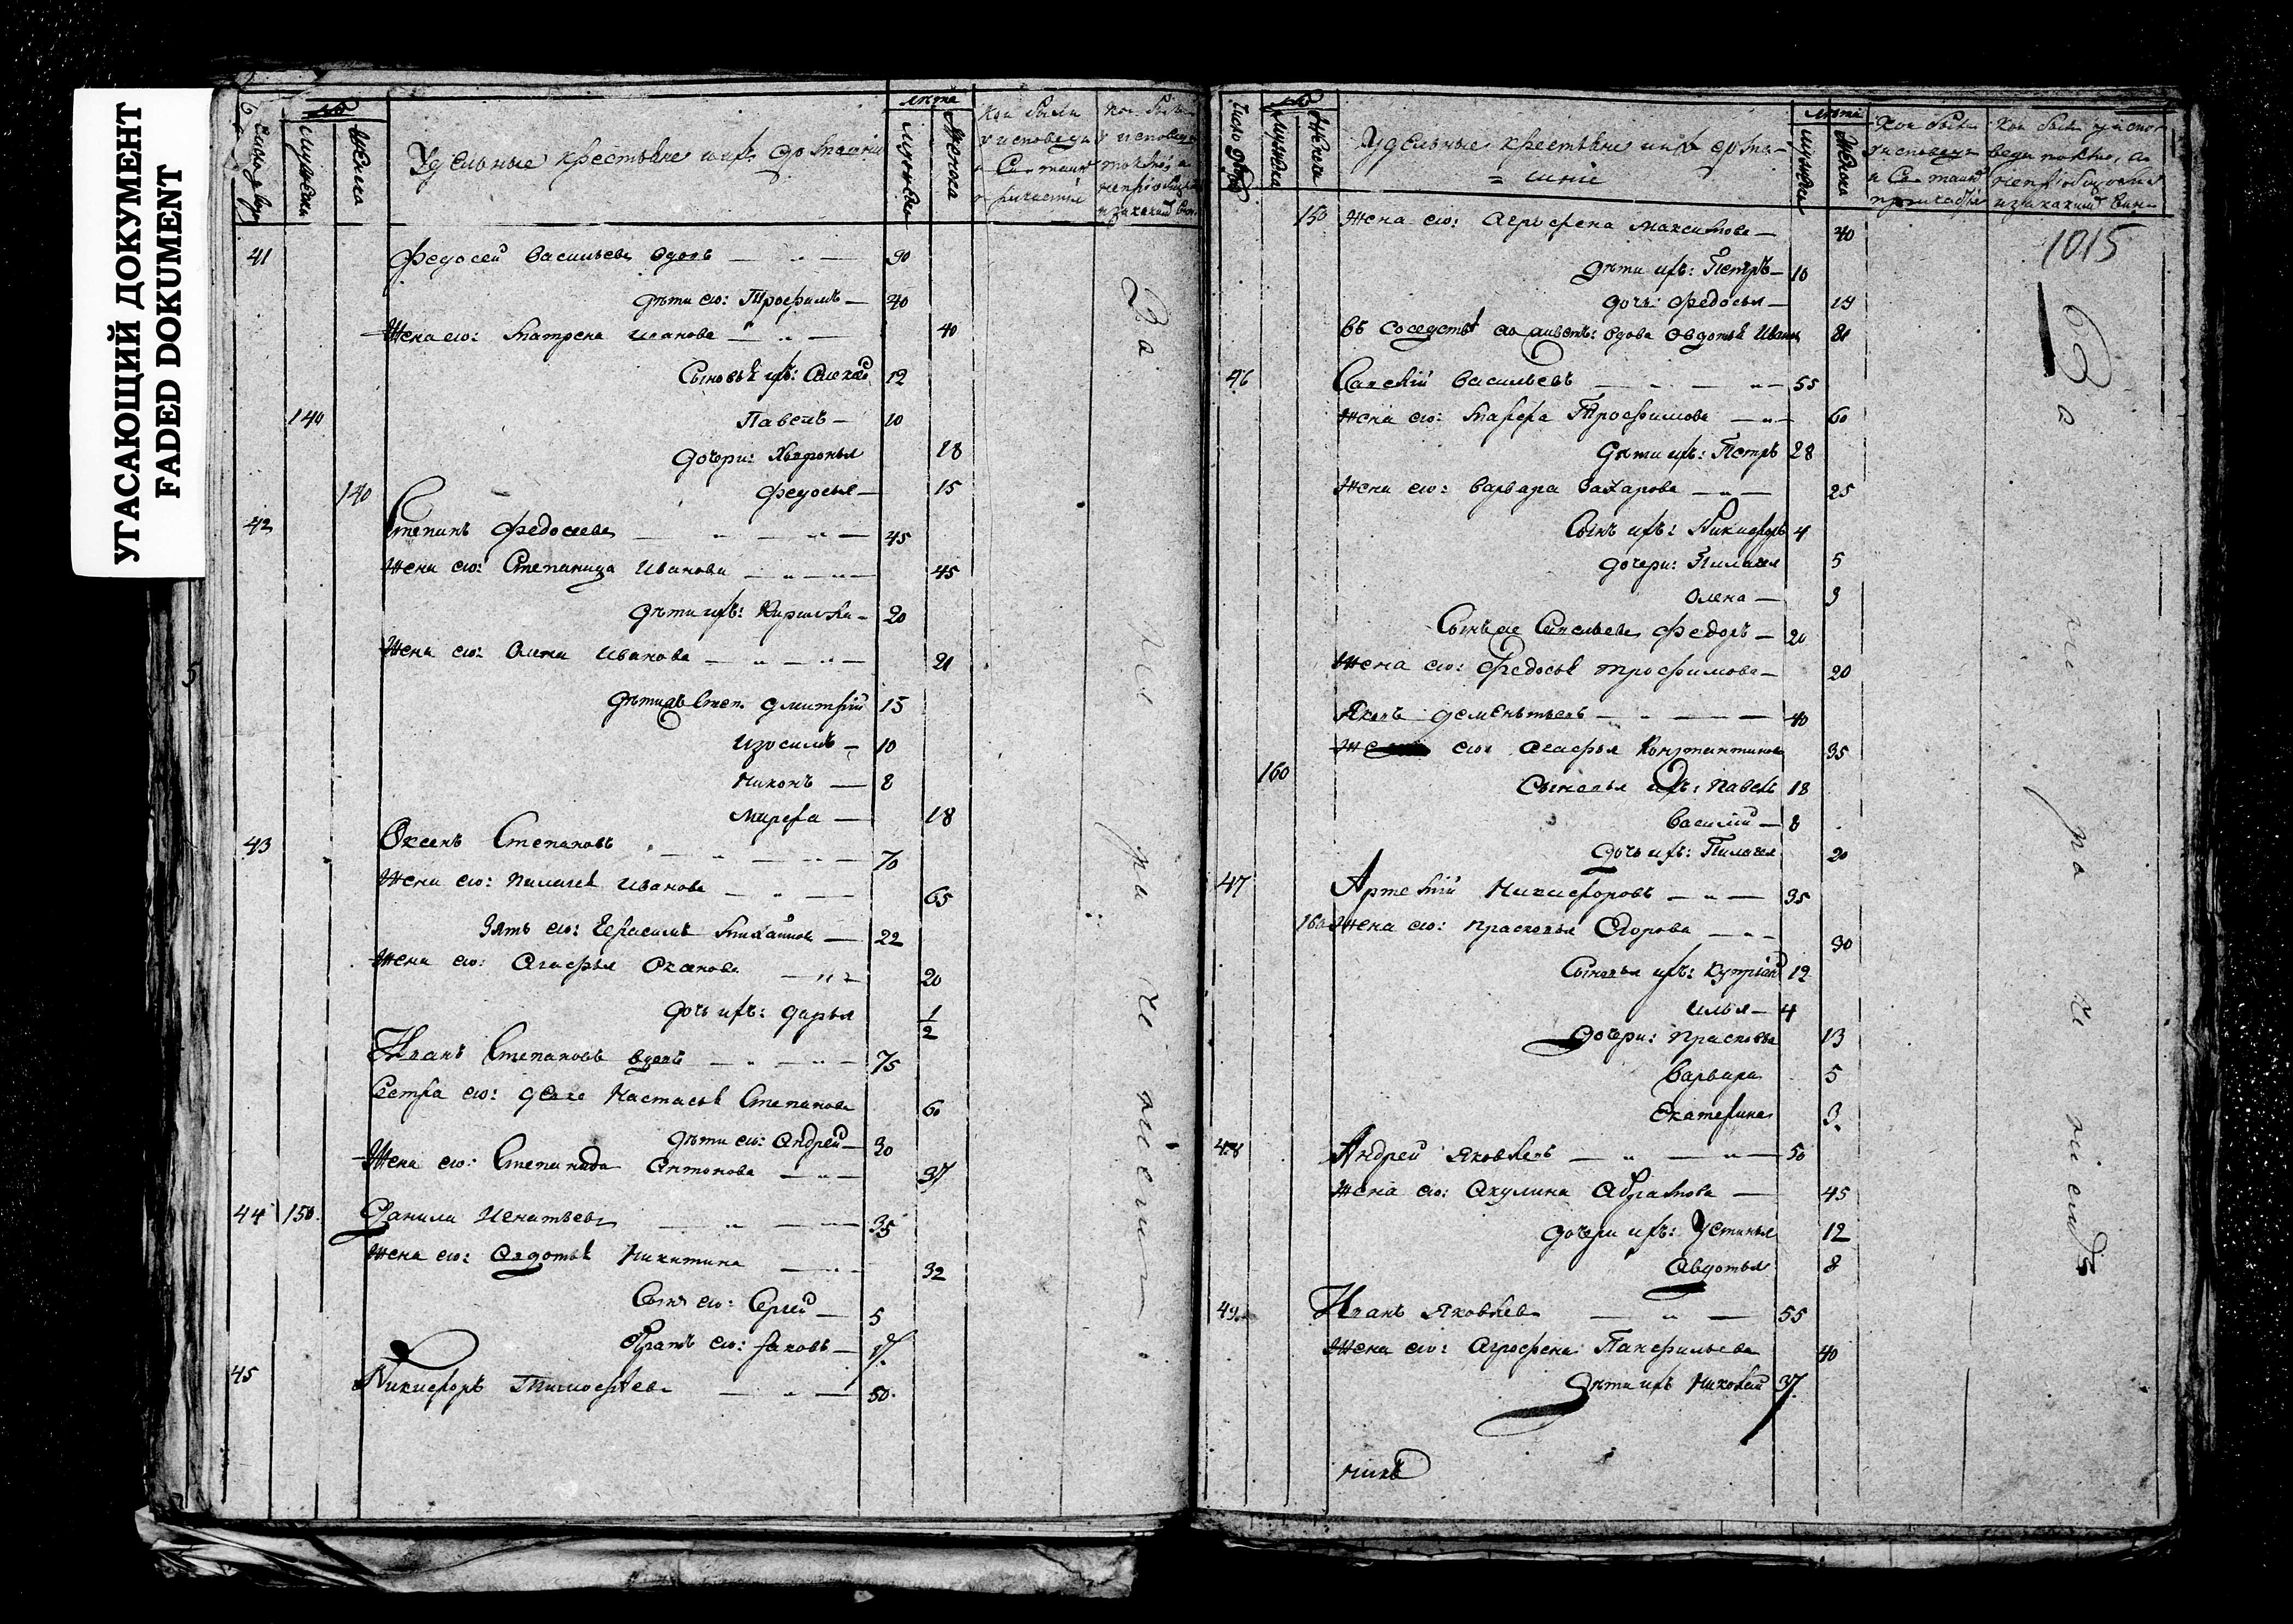 УГАСАЮЩИЙ ДОКУМЕНТ
FADED DOKUMENT
Число двор
№
мужеска
женска
Удельные крестьяне и ихъ домашніи
лѣта
мужеска
женска
Кои были
у исповеди
и Св. таинъ
причастія
Кои были
у исповеди
токмо, а
41 Федосей Васильевъ вдовъ 90
Дѣти ею: Трофимъ 40
Жена ею: Матрена Иванова 40
Сыновья ихъ: 12
140 Павелъ 10
дочери: 18
140 Федосья 15
42 Степанъ Федосеевъ 45
Жена ею: Степанида Иванова 45
Дѣти ихъ: 20
Жена ею: Олена Иванова 21
Дѣти Степ. Дмитрій 15
Изосимъ 10
Никонъ 8
Марфа 18
43 Оксенъ Степановъ 70
Жена ею: Пилагея Иванова 65
Зять ею: Герасимъ Михайловъ 22
Жена ею: Агафья Оксенова 20
дочь ихъ: Дарья 1/2
Иванъ Степановъ вдовъ 75
Сестра ею: Настасья Степанова 60
Дѣти ею: Андрей 30
Жена ею: Степанида Антонова 37
44 150 Данила Игнатьевъ 35
Жена ею: Авдотья Никитина 32
Сынъ ею: Сергей 5
Братъ ею: Яковъ 17
45 Никифоръ Тимофѣевъ 50
Число дворовъ
№
мужеска
женска
Удельные крестьяне и ихъ дома=
=шніе
лѣта
мужеска
женска
Кои были
у исповеди
и Св. таинъ
Кои были у испо-
веди токмо, а
не приобщались
и за какимъ вин
1015
63
150 Жена ею: Агрофена Максимова 40
Дѣти ихъ: Петръ 10
дочь: Федосья 14
въ соседствѣ живетъ: вдова Овдотья Иванова 80
46 Савелій Васильевъ 55
Жена ею: Марфа Трофимова 60
Дѣти ихъ: Петръ 28
Жена ею: Варвара Захарова 25
Сынъ ихъ: Никифоръ 4
дочери: Пилагея 5
Олена 3
Сынъ Савельевъ Федоръ 20
Жена ею: Федосья Трофимова 20
Яковъ Дементьевъ 40
Жена ею: Агафья Констянтинова 35
160 Сыновья ихъ: Павелъ 18
Василій 8
дочь ихъ: Пилагея 20
47 Артемій Никифоровъ 35
160 Жена ею: Прасковья Егорова 30
Сыновья ихъ: Купріянъ 12
Илья 4
дочери: Прасковья 13
Варвара 5
Екатерина 3
48 Андрей Яковлевъ 50
Жена ею: Акулина Абрамова 45
дочери ихъ: Устинья 12
Авдотья 8
49 Иванъ Яковлевъ 55
Жена ею: Агрофена Панфильева 40
Дѣти ихъ Николай 37